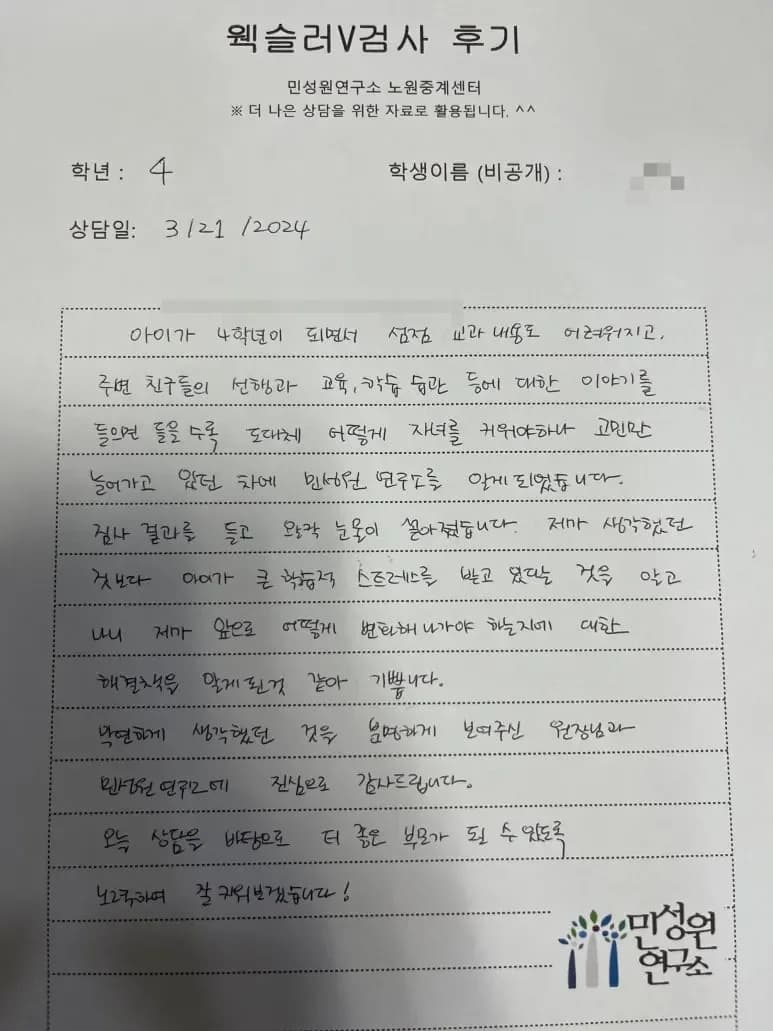 웩슬러V검사 후기
민성원연구소 노원중계센터
※ 더 나은 상담을 위한 자료로 활용됩니다. ^^
학년 : 4 학생이름 (비공개) :
상담일: 3/21/2024
아이가 4학년이 되면서 점점 교과 내용도 어려워지고,
주변 친구들의 선행과 교육, 학습 습관 등에 대한 이야기를
들으면 들을수록 도대체 어떻게 자녀를 키워야하나 고민만
늘어가고 있던 차에 민성원 연구소를 알게되었습니다.
검사 결과를 듣고 왈칵 눈물이 쏟아졌습니다. 제가 생각했던
것보다 아이가 큰 학습적 스트레스를 받고 있다는 것을 알고
나니 제가 앞으로 어떻게 변화해나가야 하는지에 대한
해결책을 알게된것 같아 기쁩니다.
막연하게 생각했던 것을 분명하게 보여주신 원장님과
민성원 연구소에 진심으로 감사드립니다.
오늘 상담을 바탕으로 더 좋은 부모가 될 수 있도록
노력하여 잘 키워보겠습니다!
민성원
연구소